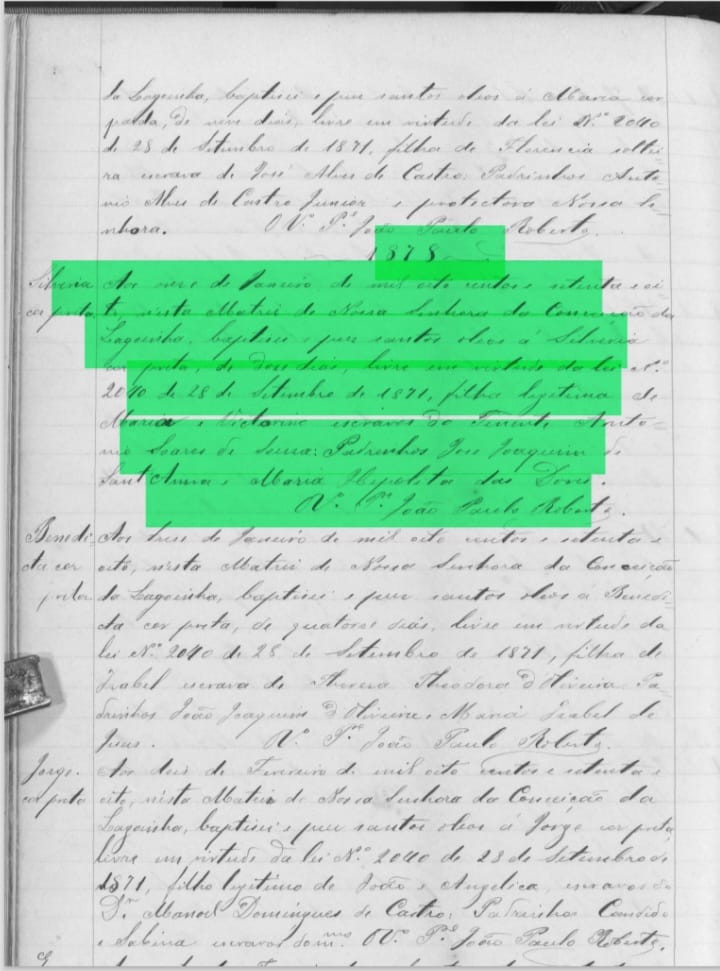 da Lagoinha, baptisei e puz santos oleos á Maria cor
parda, de nove dias, livre em virtude da lei N.º 2040
de 28 de Setembro de 1871, filha de Florencia soltei-
ra escrava de José Alves de Castro: Padrinhos Anto-
nio Alves de Castro Junior e protectora Nossa Se-
nhora. O V.º P.e João Paulo Roberto.
1878
Silveria
cor preta
Aos onze de Janeiro de mil oito centos e setenta e oi-
to, nesta Matriz de Nossa Senhora da Conceição da
Lagoinha, baptisei e puz santos oleos á Silveria
cor preta, de dous dias, livre em virtude da lei N.º
2040 de 28 de Setembro de 1871, filha legitima de
Maria e Victorino escravos do Tenente Anto-
nio Soares de Souza: Padrinhos José Joaquim de
Sant'Anna e Maria Hypolita das Dores.
O V.º P.e João Paulo Roberto.
Benedi-
cta cor
preta
Aos tres de Janeiro de mil oito centos e setenta e
oito, nesta Matriz de Nossa Senhora da Conceição
da Lagoinha, baptisei e puz santos oleos á Benedi-
cta cor preta, de quatorse dias, livre em virtude da
lei N.º 2040 de 28 de Setembro de 1871, filha de
Izabel escrava de Thereza Theodora d'Oliveira Pa-
drinhos João Joaquim d'Oliveira e Maria Izabel de
Jesus. O V.º P.e João Paulo Roberto.
Jorge.
cor preta
Aos dois de Fevereiro de mil oito centos e setenta e
oito, nesta Matriz de Nossa Senhora da Conceição da
Lagoinha, baptisei e puz santos oleos á Jorge cor preta,
livre em virtude da lei N.º 2040 de 28 de Setembro de
1871, filho legitimo de João e Angelica, escravos de
D.r Manoel Domingues de Castro: Padrinhos Candido
e Sabina escravos do m.mo O V.º P.e João Paulo Roberto.